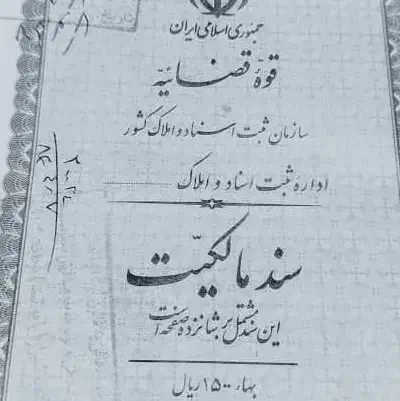 جمهوری اسلامی ایران
قوهٔ قضائیه
سازمان ثبت اسناد و املاک کشور
اداره ثبت اسناد و املاک
سند مالکیت
این سند مشتمل بر شانزده صفحه است
بهاء ۱۵۰۰ ریال